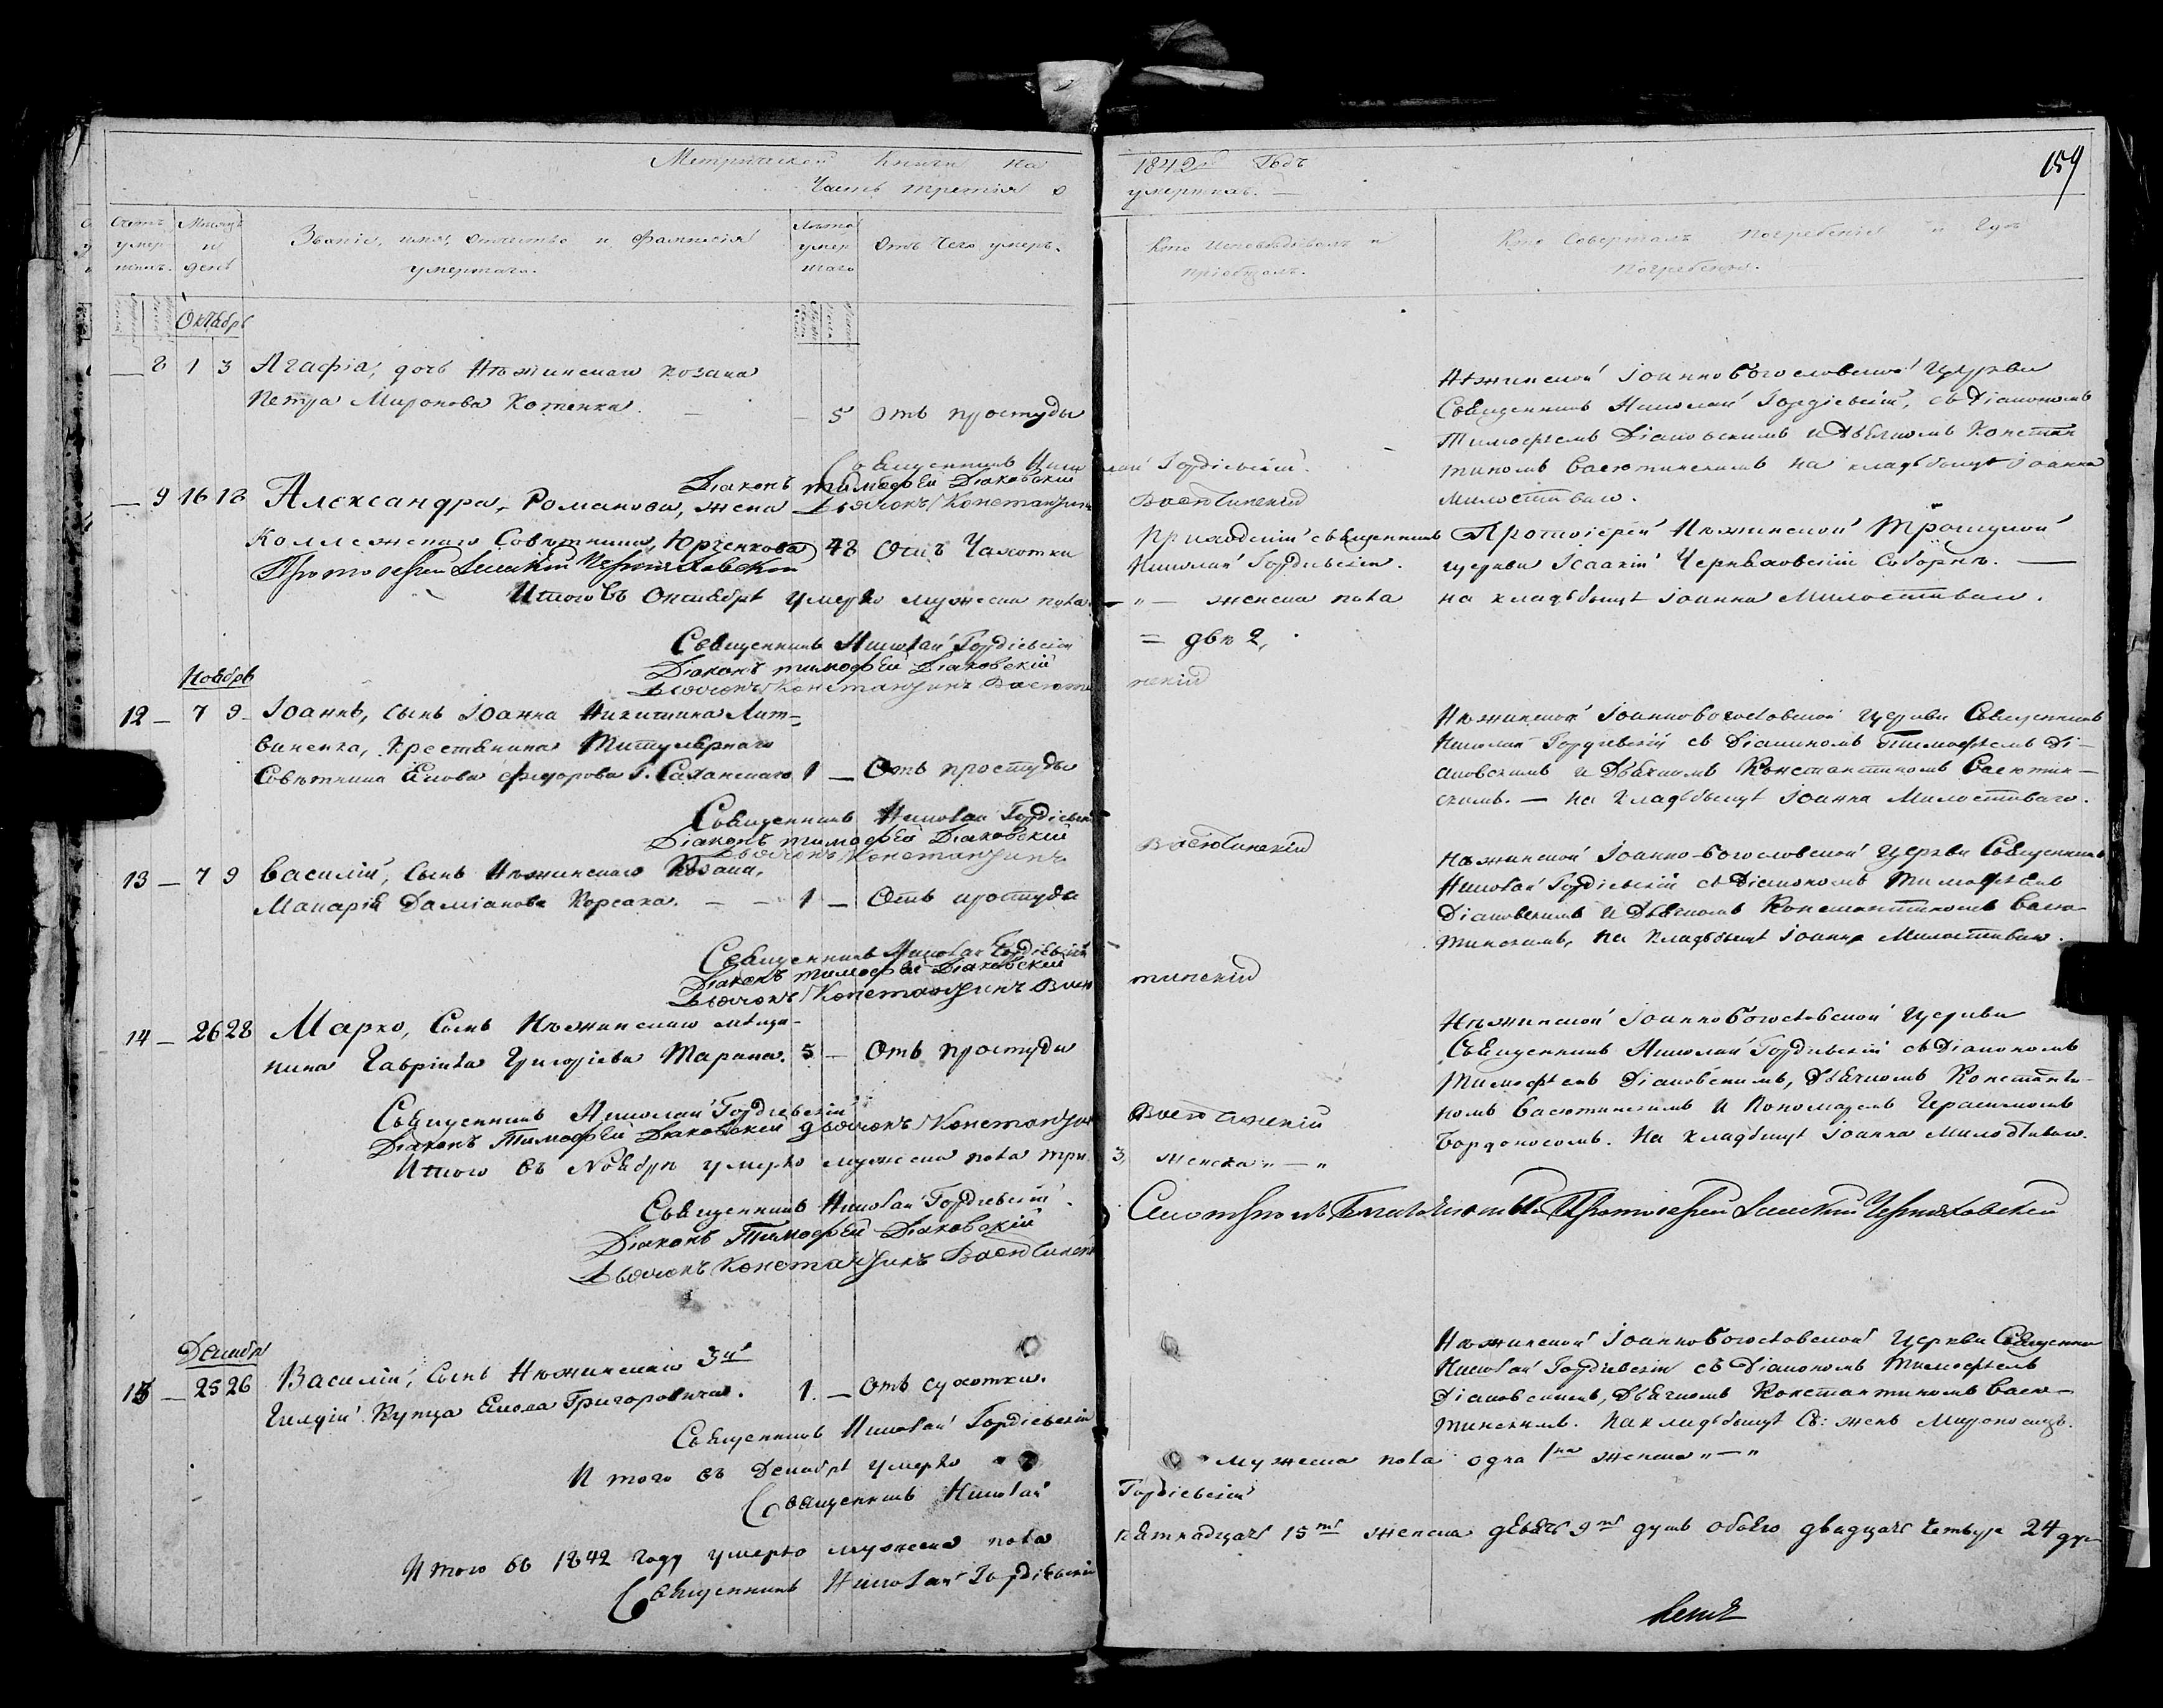 Метрической Книги на 1842й Годъ
Часть третія о умершихъ.
159
Счетъ умер-шихъ.
Месяцъ и день
Званіе, имя, отчество и фамилія умершаго.
Лѣта умер-шаго
Отъ чего умеръ.
Кто исповѣдывалъ и пріобщалъ.
Кто Совершалъ погребеніе и Гдѣ погребены.
Октябрь
— 8 1 3 Агафія, дочь Нѣжинскаго козака
Петра Миронова Котенка. — — 5 Отъ простуды
Нѣжинской Іоанно Богословской Церкви
Священникъ Николай Гордіевскій, съ Діакономъ
Тимофѣемъ Діаковскимъ и Дьячкомъ Констан
тиномъ Васютинскимъ на кладбищѣ Іоанна
Милостиваго.
Священникъ Николай Гордіевскій.
Діаконъ Тимофей Діаковскій
Дьячокъ Константинъ Васютинскій
— 9 16 18 Александра, Романова, жена
Коллежскаго Совѣтника, Юрченкова 48 Отъ Чахотки
Приходскій священникъ
Николай Гордіевскій.
Протоіерей Нѣжинской Троицкой
церкви Исаакій Черняховскій Соборнѣ. —
на кладбищѣ Іоанна Милостиваго.
Протоіерей Исаакій Черняховскій
Итого въ Октябрѣ умерло мужеска пола — „ — женска пола
= двѣ 2,
Священникъ Николай Гордіевскій
Діаконъ Тимофей Діаковскій
Дьячокъ Константинъ Васютинскій
Ноябрь
12 — 7 9 Іоаннъ, сынъ Іоанна Никитина Лит-
виненка, Крестьянина Титулярнаго
Совѣтника Якова Федорова Г. Саханскаго 1 — Отъ простуды
Нѣжинской Іоанно богословской церкви Священникъ
Николай Гордіевскій съ Діакономъ Тимофѣемъ Ді-
аковскимъ и Дьячкомъ Константиномъ Васютин-
скимъ. — на кладбищѣ Іоанна Милостиваго.
Священникъ Николай Гордіевскій
Діаконъ Тимофей Діаковскій
Дьячокъ Константинъ Васютинскій
13 — 7 9 Василій, сынъ Нѣжинскаго Козака,
Макарія Даміанова Корсака. — — 1 — Отъ простуды
Нѣжинской Іоанно-богословской Церкви Священникъ
Николай Гордіевскій съ Діакономъ Тимофѣемъ
Діаковскимъ и Дьячкомъ Константиномъ Васю-
тинскимъ, на кладбищѣ Іоанна Милостиваго.
Священникъ Николай Гордіевскій
Діаконъ Тимофей Діаковскій
Дьячокъ Константинъ Васютинскій
14 — 26 28 Марко, Сынъ Нѣжинскаго мѣща-
нина Гавріила Григоріева Тарана. 5 — Отъ простуды
Нѣжинской Іоанно Богословской Церкви
Священникъ Николай Гордіевскій съ Діакономъ
Тимофѣемъ Діаковскимъ, Дьячкомъ Константи-
номъ Васютинскимъ и Пономаремъ Герасимомъ
Бордоносомъ. На кладбищѣ Іоанна Милостиваго.
Священникъ Николай Гордіевскій
Діаконъ Тимофей Діаковскій дьячокъ Константинъ Васютинскій
Итого въ Ноябрѣ умерло мужеска пола три. 3, женска „ — „
Священникъ Николай Гордіевскій.
Діаконъ Тимофей Діаковскій
Дьячокъ Константинъ Васютинскій
Смотрѣлъ Благочинный Протоіерей Исаакій Черняховскій
Декабрь
15 — 25 26 Василій, Сынъ Нѣжинскаго 3й
Гилдіи Купца Якова Григоровича. 1. — Отъ сухотки.
Нѣжинской Іоанно Богословской Церкви Священни
Николай Гордіевскій съ Діакономъ Тимофѣемъ
Діаковскимъ, Дьячкомъ Константиномъ Васю-
тинскимъ. На кладбищѣ Св: женъ Мироносицъ.
Священникъ Николай Гордіевскій
Итого въ Декабрѣ умерло мужеска пола одна 1на женска „ — „
Священникъ Николай Гордіевскій
Итого въ 1842 году умерло мужеска пола пятнадцать 15ть женска девять 9ть душъ обоего двадцать четыре 24 душ
Священникъ Николай Гордіевскій